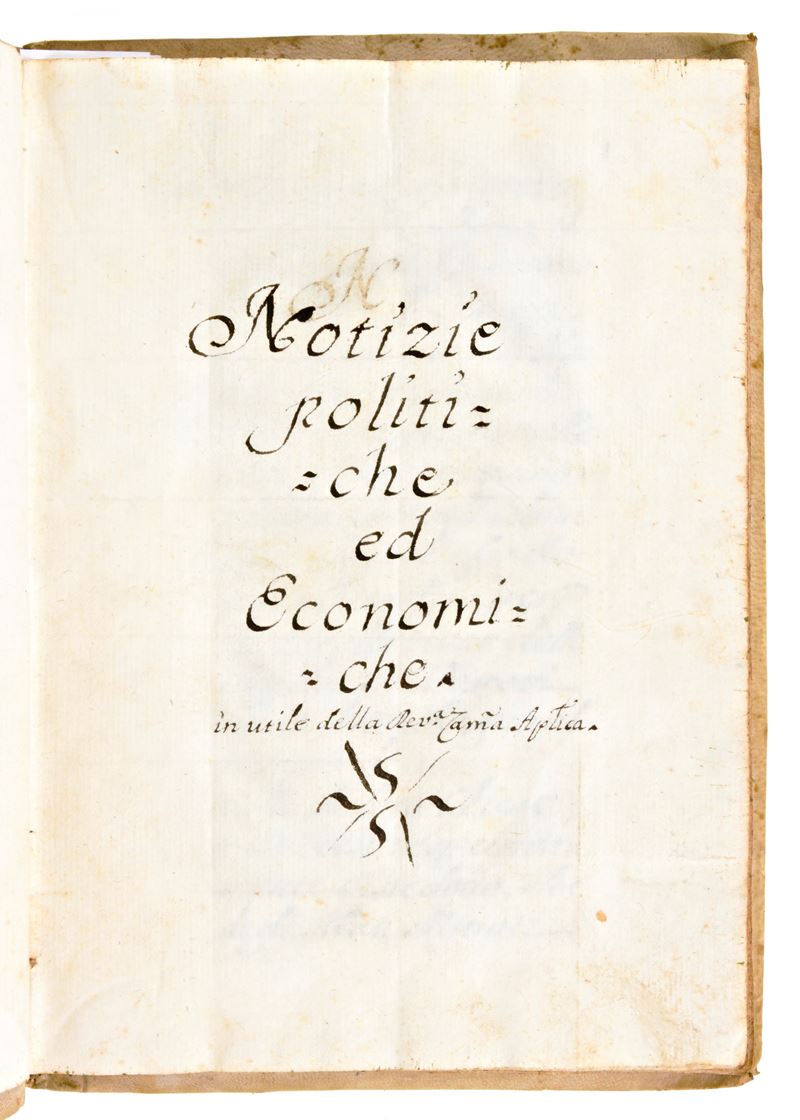 N
Notizie
politi=
=che
ed
Economi=
=che.
in utile della Rev.ᵃ Cam̃a Ap̃lica.